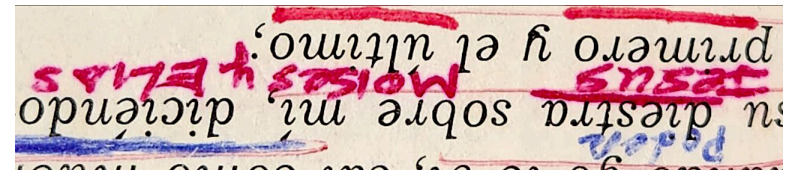 Poder
su diestra sobre mí, diciéndo
Jesus Moises y Elias
primero y el último;